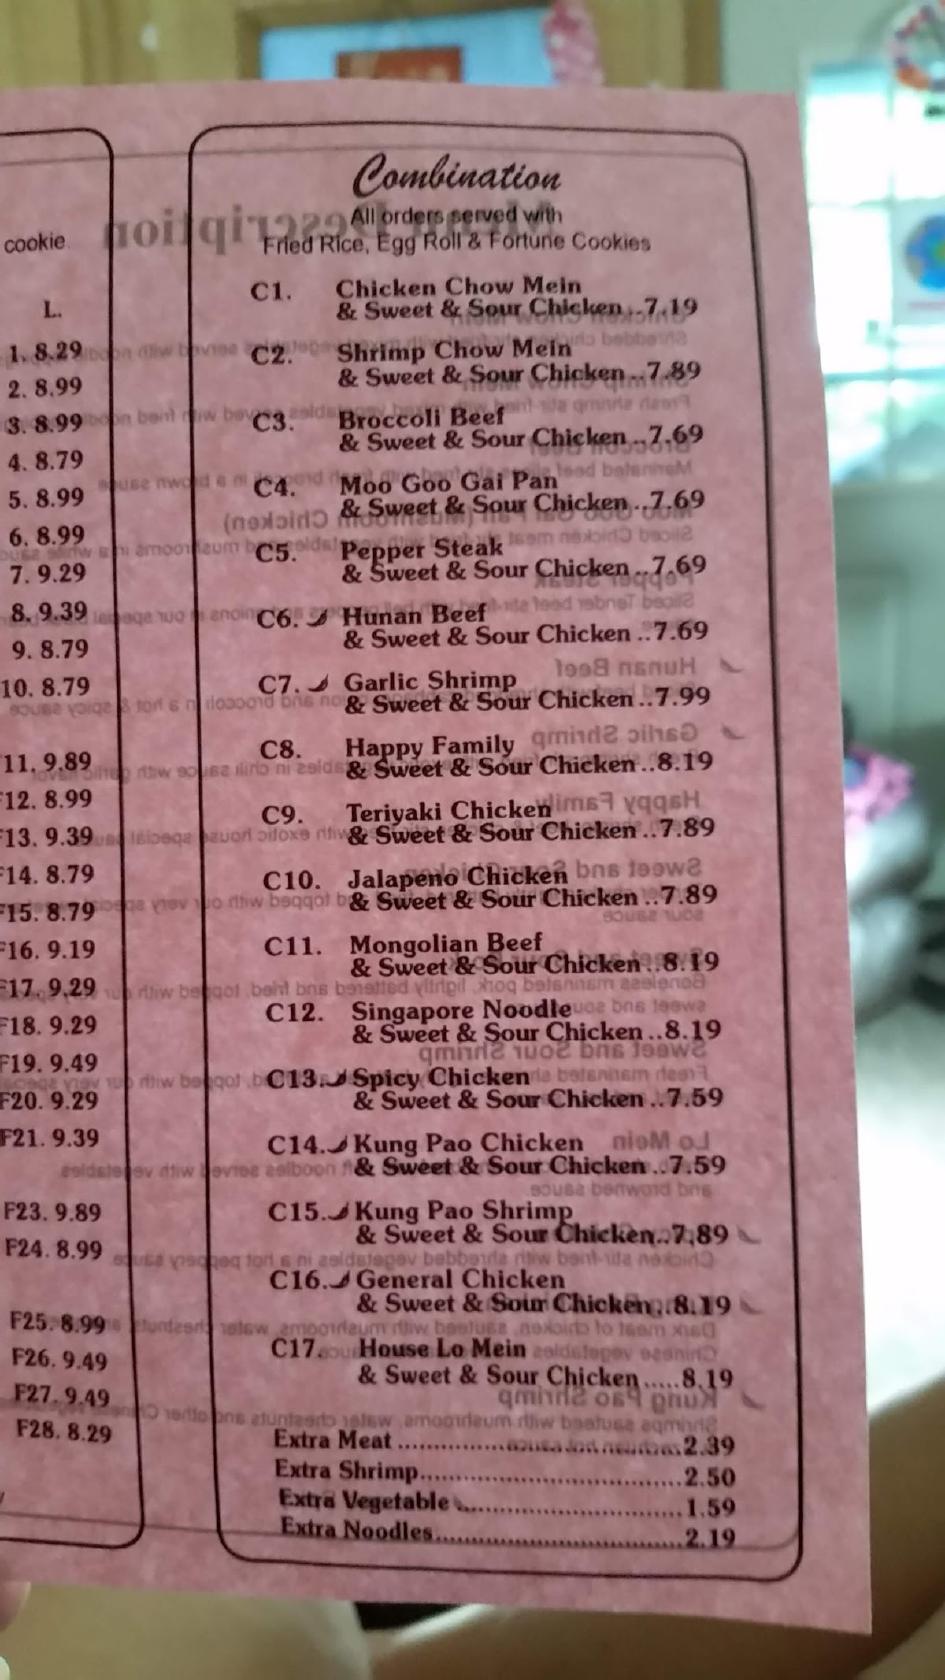 cookie
L.
1. 8.29
2. 8.99
3. 8.99
4. 8.79
5. 8.99
6. 8.99
7. 9.29
8. 9.39
9. 8.79
10. 8.79
11. 9.89
F12. 8.99
F13. 9.39
F14. 8.79
F15. 8.79
F16. 9.19
F17. 9.29
F18. 9.29
F19. 9.49
F20. 9.29
F21. 9.39
F23. 9.89
F24. 8.99
F25. 8.99
F26. 9.49
F27. 9.49
F28. 8.29
Combination
All orders served with
Fried Rice, Egg Roll & Fortune Cookies
C1. Chicken Chow Mein
& Sweet & Sour Chicken..7.19
C2. Shrimp Chow Mein
& Sweet & Sour Chicken..7.89
C3. Broccoli Beef
& Sweet & Sour Chicken..7.69
C4. Moo Goo Gai Pan
& Sweet & Sour Chicken..7.69
C5. Pepper Steak
& Sweet & Sour Chicken..7.69
C6. Hunan Beef
& Sweet & Sour Chicken..7.69
C7. Garlic Shrimp
& Sweet & Sour Chicken..7.99
C8. Happy Family
& Sweet & Sour Chicken..8.19
C9. Teriyaki Chicken
& Sweet & Sour Chicken..7.89
C10. Jalapeno Chicken
& Sweet & Sour Chicken..7.89
C11. Mongolian Beef
& Sweet & Sour Chicken..8.19
C12. Singapore Noodle
& Sweet & Sour Chicken..8.19
C13. Spicy Chicken
& Sweet & Sour Chicken..7.59
C14. Kung Pao Chicken
& Sweet & Sour Chicken..7.59
C15. Kung Pao Shrimp
& Sweet & Sour Chicken..7.89
C16. General Chicken
& Sweet & Sour Chicken..8.19
C17. House Lo Mein
& Sweet & Sour Chicken.....8.19
Extra Meat..............................2.39
Extra Shrimp..............................2.50
Extra Vegetable..............................1.59
Extra Noodles..............................2.19